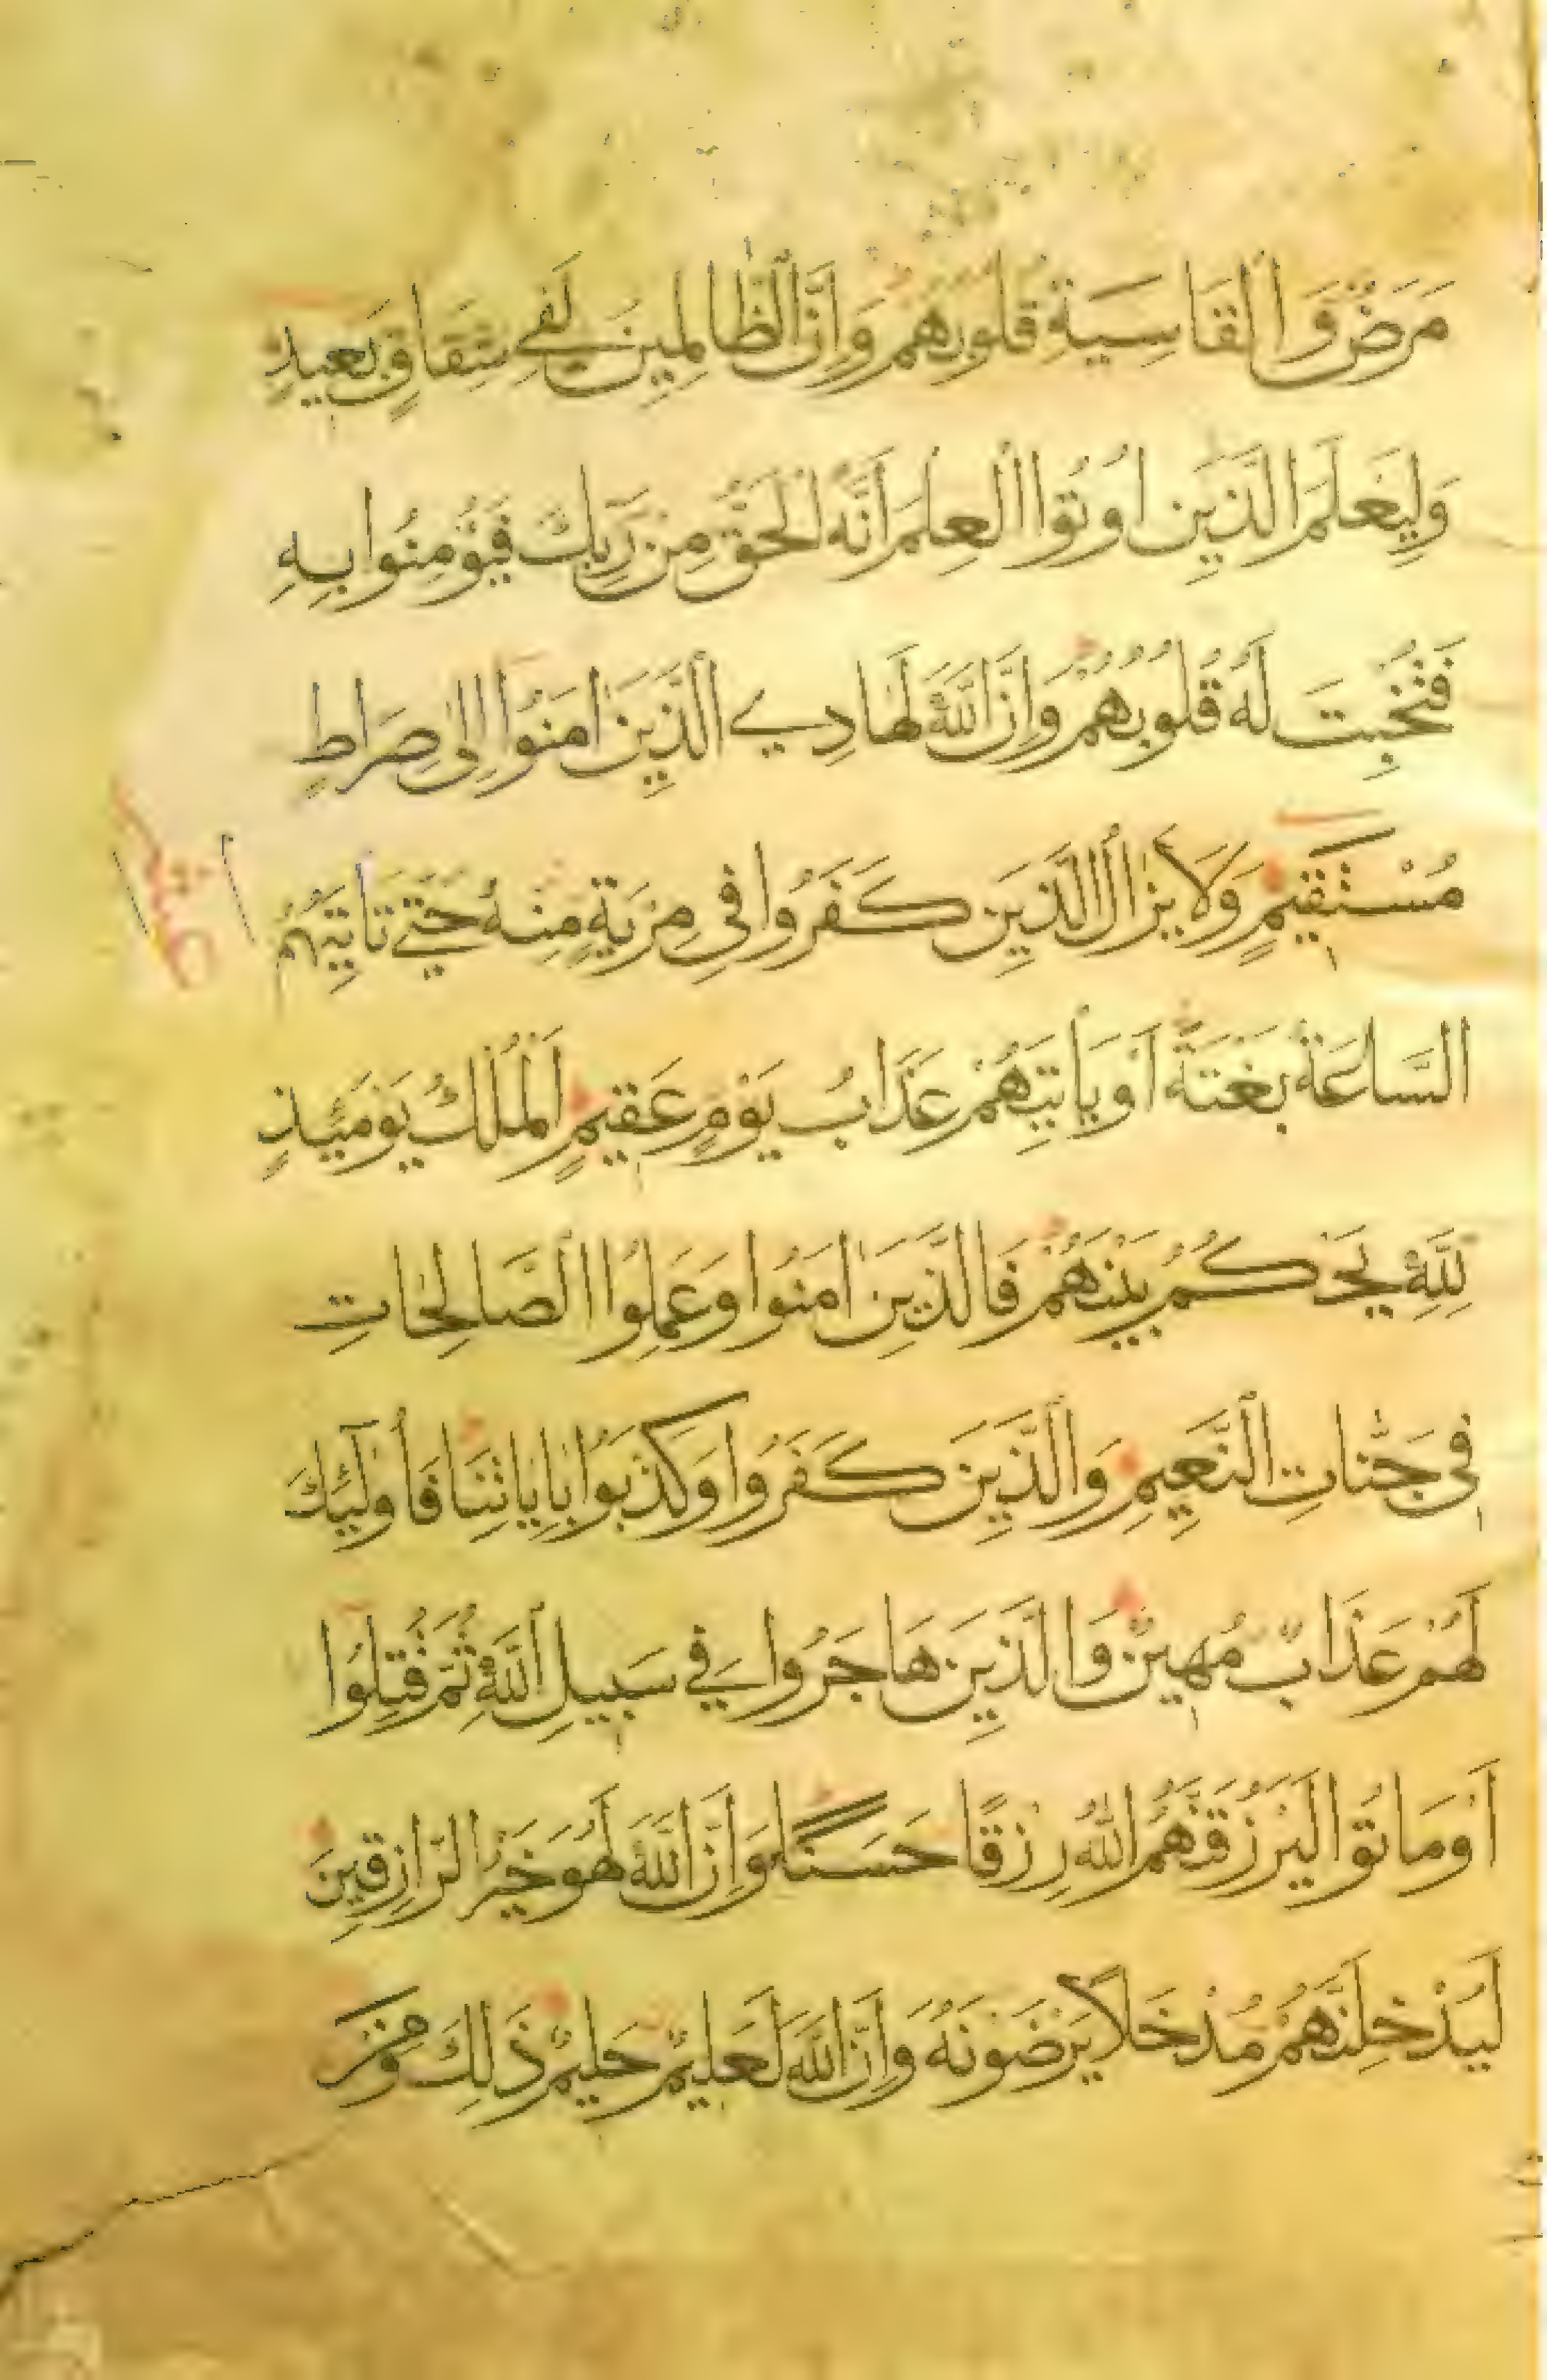 مَرَضٌ وَالْقَاسِيَةِ قُلُوبُهُمْ وَإِنَّ الظَّالِمِينَ لَفِي شِقَاقٍ بَعِيدٍ
وَلِيَعْلَمَ الَّذِينَ أُوتُوا الْعِلْمَ أَنَّهُ الْحَقُّ مِنْ رَبِّكَ فَيُؤْمِنُوا بِهِ
فَتُخْبِتَ لَهُ قُلُوبُهُمْ وَإِنَّ اللَّهَ لَهَادِي الَّذِينَ اٰمَنُوا إِلَى صِرَاطٍ
مُسْتَقِيمٍ وَلَا يَزَالُ الَّذِينَ كَفَرُوا فِي مِرْيَةٍ مِنْهُ حَتَّى تَأْتِيَهُمُ
السَّاعَةُ بَغْتَةً أَوْ يَأْتِيَهُمْ عَذَابُ يَوْمٍ عَقِيمٍ الْمُلْكُ يَوْمَئِذٍ
لِلَّهِ يَحْكُمُ بَيْنَهُمْ فَالَّذِينَ اٰمَنُوا وَعَمِلُوا الصَّالِحَاتِ
فِي جَنَّاتِ النَّعِيمِ وَالَّذِينَ كَفَرُوا وَكَذَّبُوا بِاٰيَاتِنَا فَأُولَئِكَ
لَهُمْ عَذَابٌ مُهِينٌ وَالَّذِينَ هَاجَرُوا فِي سَبِيلِ اللَّهِ ثُمَّ قُتِلُوا
أَوْ مَاتُوا لَيَرْزُقَنَّهُمُ اللَّهُ رِزْقًا حَسَنًا وَإِنَّ اللَّهَ لَهُوَ خَيْرُ الرَّازِقِينَ
لَيُدْخِلَنَّهُمْ مُدْخَلًا يَرْضَوْنَهُ وَإِنَّ اللَّهَ لَعَلِيمٌ حَلِيمٌ ذَلِكَ وَمَنْ